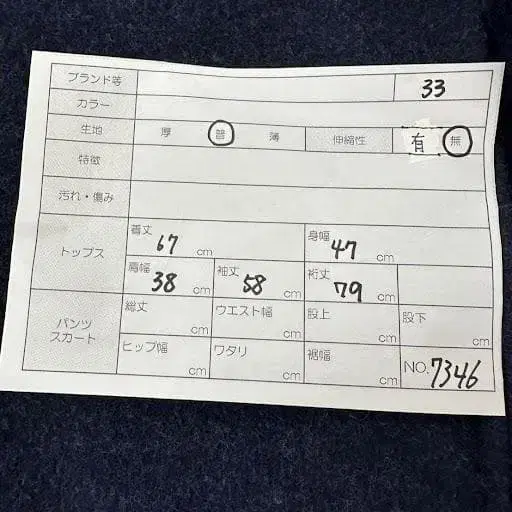 ブランド等 33
カラー
生地 厚 普 薄 伸縮性 有 無
特徴
汚れ・傷み
トップス 着丈 67 cm 身幅 47 cm
肩幅 38 cm 袖丈 58 cm 裄丈 79 cm
パンツ スカート 総丈 cm ウエスト幅 cm 股上 cm 股下 cm
ヒップ幅 cm ワタリ cm 裾幅 cm NO. 7346